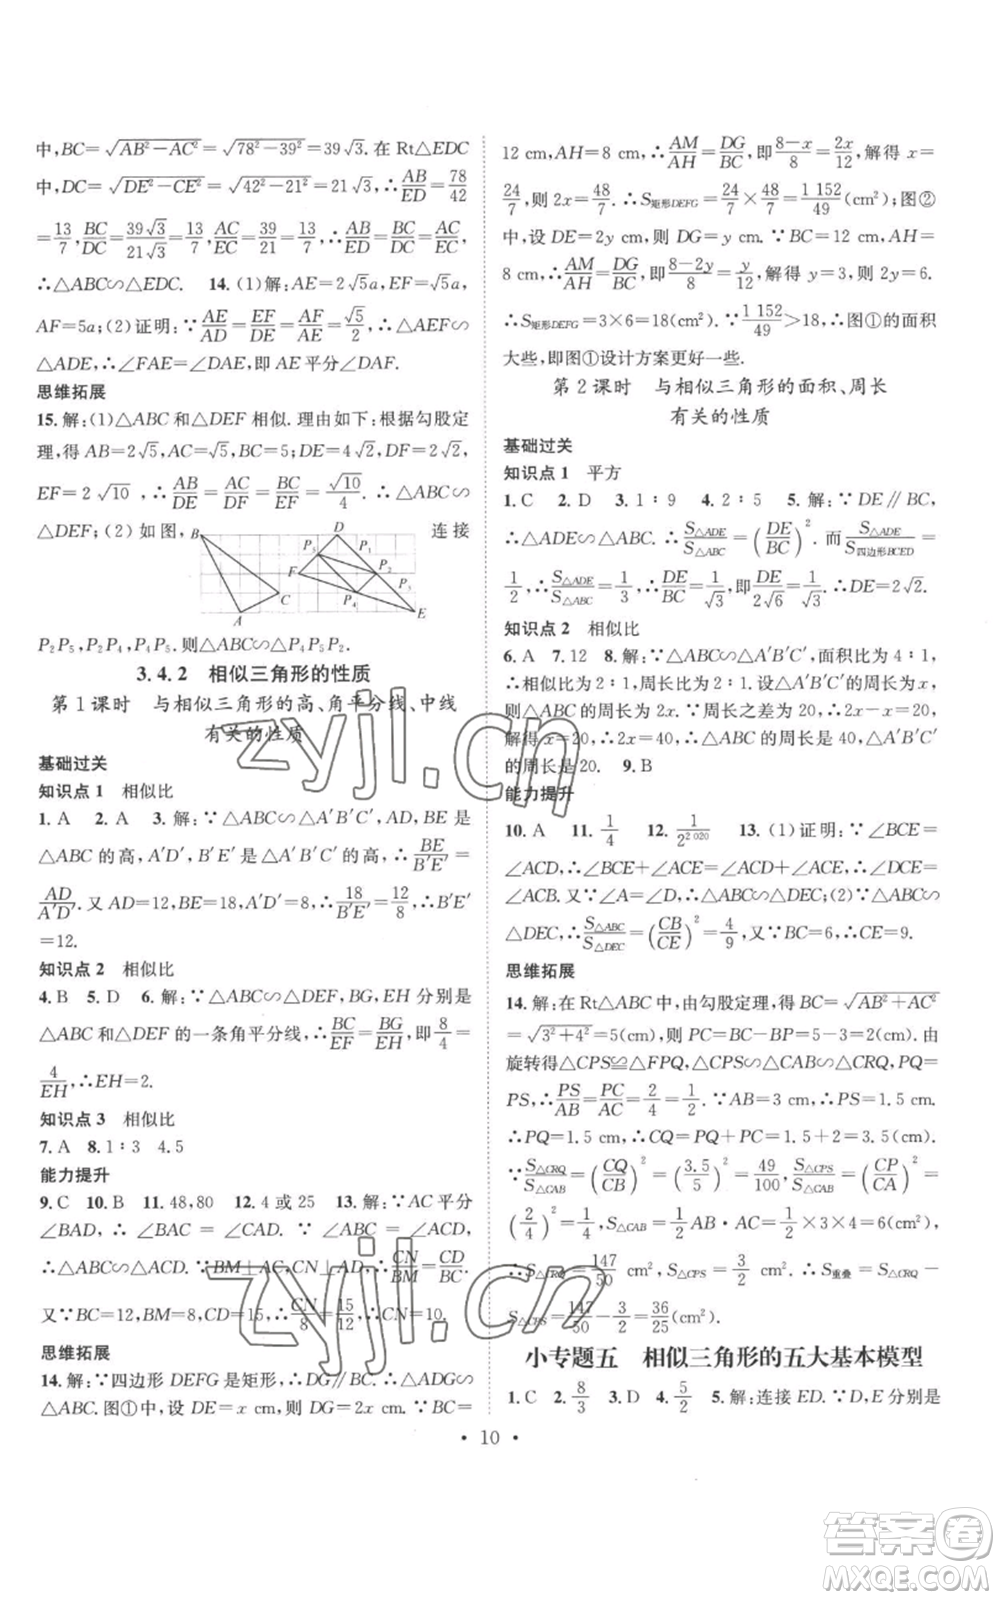 中,BC=√(AB²-AC²)=√(78²-39²)=39√3.在Rt△EDC
中,DC=√(DE²-CE²)=√(42²-21²)=21√3,∴AB/ED=78/42
=13/7,BC/DC=39√3/21√3=13/7,AC/EC=39/21=13/7,∴AB/ED=BC/DC=AC/EC,
∴△ABC∽△EDC. 14. (1)解:AE=2√5a,EF=√5a,
AF=5a;(2)证明:∵AE/AD=EF/DE=AF/AE=√5/2,∴△AEF∽
△ADE,∴∠FAE=∠DAE,即AE平分∠DAF.
思维拓展
15.解:(1)△ABC和△DEF相似.理由如下:根据勾股定
理,得AB=2√5,AC=√5,BC=5;DE=4√2,DF=2√2,
EF=2√10,∴AB/DE=AC/DF=BC/EF=√10/4.∴△ABC∽
△DEF;(2)如图, 连接
B
A
C
D
P₁
P₃
F
P₂
P₄
P₅
E
P₂P₅,P₂P₄,P₄P₅.则△ABC∽△P₄P₅P₂.
3.4.2 相似三角形的性质
第1课时 与相似三角形的高、角平分线、中线
有关的性质
基础过关
知识点1 相似比
1.A 2.A 3.解:∵△ABC∽△A′B′C′,AD,BE是
△ABC的高,A′D′,B′E′是△A′B′C′的高,∴BE/B′E′=
AD/A′D′.又AD=12,BE=18,A′D′=8,∴18/B′E′=12/8,∴B′E′
=12.
知识点2 相似比
4.B 5.D 6.解:∵△ABC∽△DEF,BG,EH分别是
△ABC和△DEF的一条角平分线,∴BC/EF=BG/EH,即8/4=
4/EH,∴EH=2.
知识点3 相似比
7.A 8.1∶3 4.5
能力提升
9.C 10.B 11.48,80 12.4或25 13.解:∵AC平分
∠BAD,∴∠BAC=∠CAD.∵∠ABC=∠ACD,
∴△ABC∽△ACD.∵BM⊥AC,CN⊥AD,∴CN/BM=CD/BC.
又∵BC=12,BM=8,CD=15,∴CN/8=15/12,∴CN=10.
思维拓展
14.解:∵四边形DEFG是矩形,∴DG∥BC.∴△ADG∽
△ABC.图①中,设DE=x cm,则DG=2x cm.∵BC=
12 cm,AH=8 cm,∴AM/AH=DG/BC,即(8-x)/8=2x/12,解得x=
24/7,则2x=48/7.∴S矩形DEFG=24/7×48/7=1 152/49(cm²);图②
中,设DE=2y cm,则DG=y cm.∵BC=12 cm,AH=
8 cm,∴AM/AH=DG/BC,即(8-2y)/8=y/12,解得y=3,则2y=6.
∴S矩形DEFG=3×6=18(cm²).∵1 152/49>18,∴图①的面积
大些,即图①设计方案更好一些.
第2课时 与相似三角形的面积、周长
有关的性质
基础过关
知识点1 平方
1.C 2.D 3.1∶9 4.2∶5 5.解:∵DE∥BC,
∴△ADE∽△ABC.∴S△ADE/S△ABC=(DE/BC)².而S△ADE/S四边形BCED=
1/2,∴S△ADE/S△ABC=1/3,∴DE/BC=1/√3,即DE/2√6=1/√3.∴DE=2√2.
知识点2 相似比
6.A 7.12 8.解:∵△ABC∽△A′B′C′,面积比4∶1,
∴相似比为2∶1,周长比为2∶1.设△A′B′C′的周长为x,
则△ABC的周长为2x.∵周长之差为20,∴2x-x=20,
解得x=20.∴2x=40,∴△ABC的周长是40,△A′B′C′
的周长是20. 9.B
能力提升
10.A 11.1/4 12.1/2²⁰²⁰ 13.(1)证明:∵∠BCE=
∠ACD,∴∠BCE+∠ACE=∠ACD+∠ACE,∴∠DCE=
∠ACB.又∵∠A=∠D,∴△ABC∽△DEC;(2)△ABC∽
△DEC,∴S△ABC/S△DEC=(CB/CE)²=4/9,又∵BC=6,∴CE=9.
思维拓展
14.解:在Rt△ABC中,由勾股定理,得BC=√(AB²+AC²)
=√(3²+4²)=5(cm),则PC=BC-BP=5-3=2(cm).由
旋转得△CPS≌△FPQ,△CPS∽△CAB∽△CRQ,PQ=
PS,∴PS/AB=PC/AC=2/4=1/2.∵AB=3 cm,∴PS=1.5 cm.
∴PQ=1.5 cm,∴CQ=PQ+PC=1.5+2=3.5(cm).
∵S△CRQ/S△CAB=(CQ/CB)²=(3.5/5)²=49/100,S△CPS/S△CAB=(CP/CA)²=
(2/4)²=1/4,S△CAB=1/2AB·AC=1/2×3×4=6(cm²),
∴S△CRQ=147/50 cm²,S△CPS=3/2 cm².∴S重叠=S△CRQ-
S△CPS=147/50-3/2=36/25(cm²).
小专题五 相似三角形的五大基本模型
1.C 2.8/3 3.D 4.5/2 5.解:连接ED.∵D,E分别是
• 10 •
zyjl.cn
zyjl.cn
答案卷
MXQE.COM